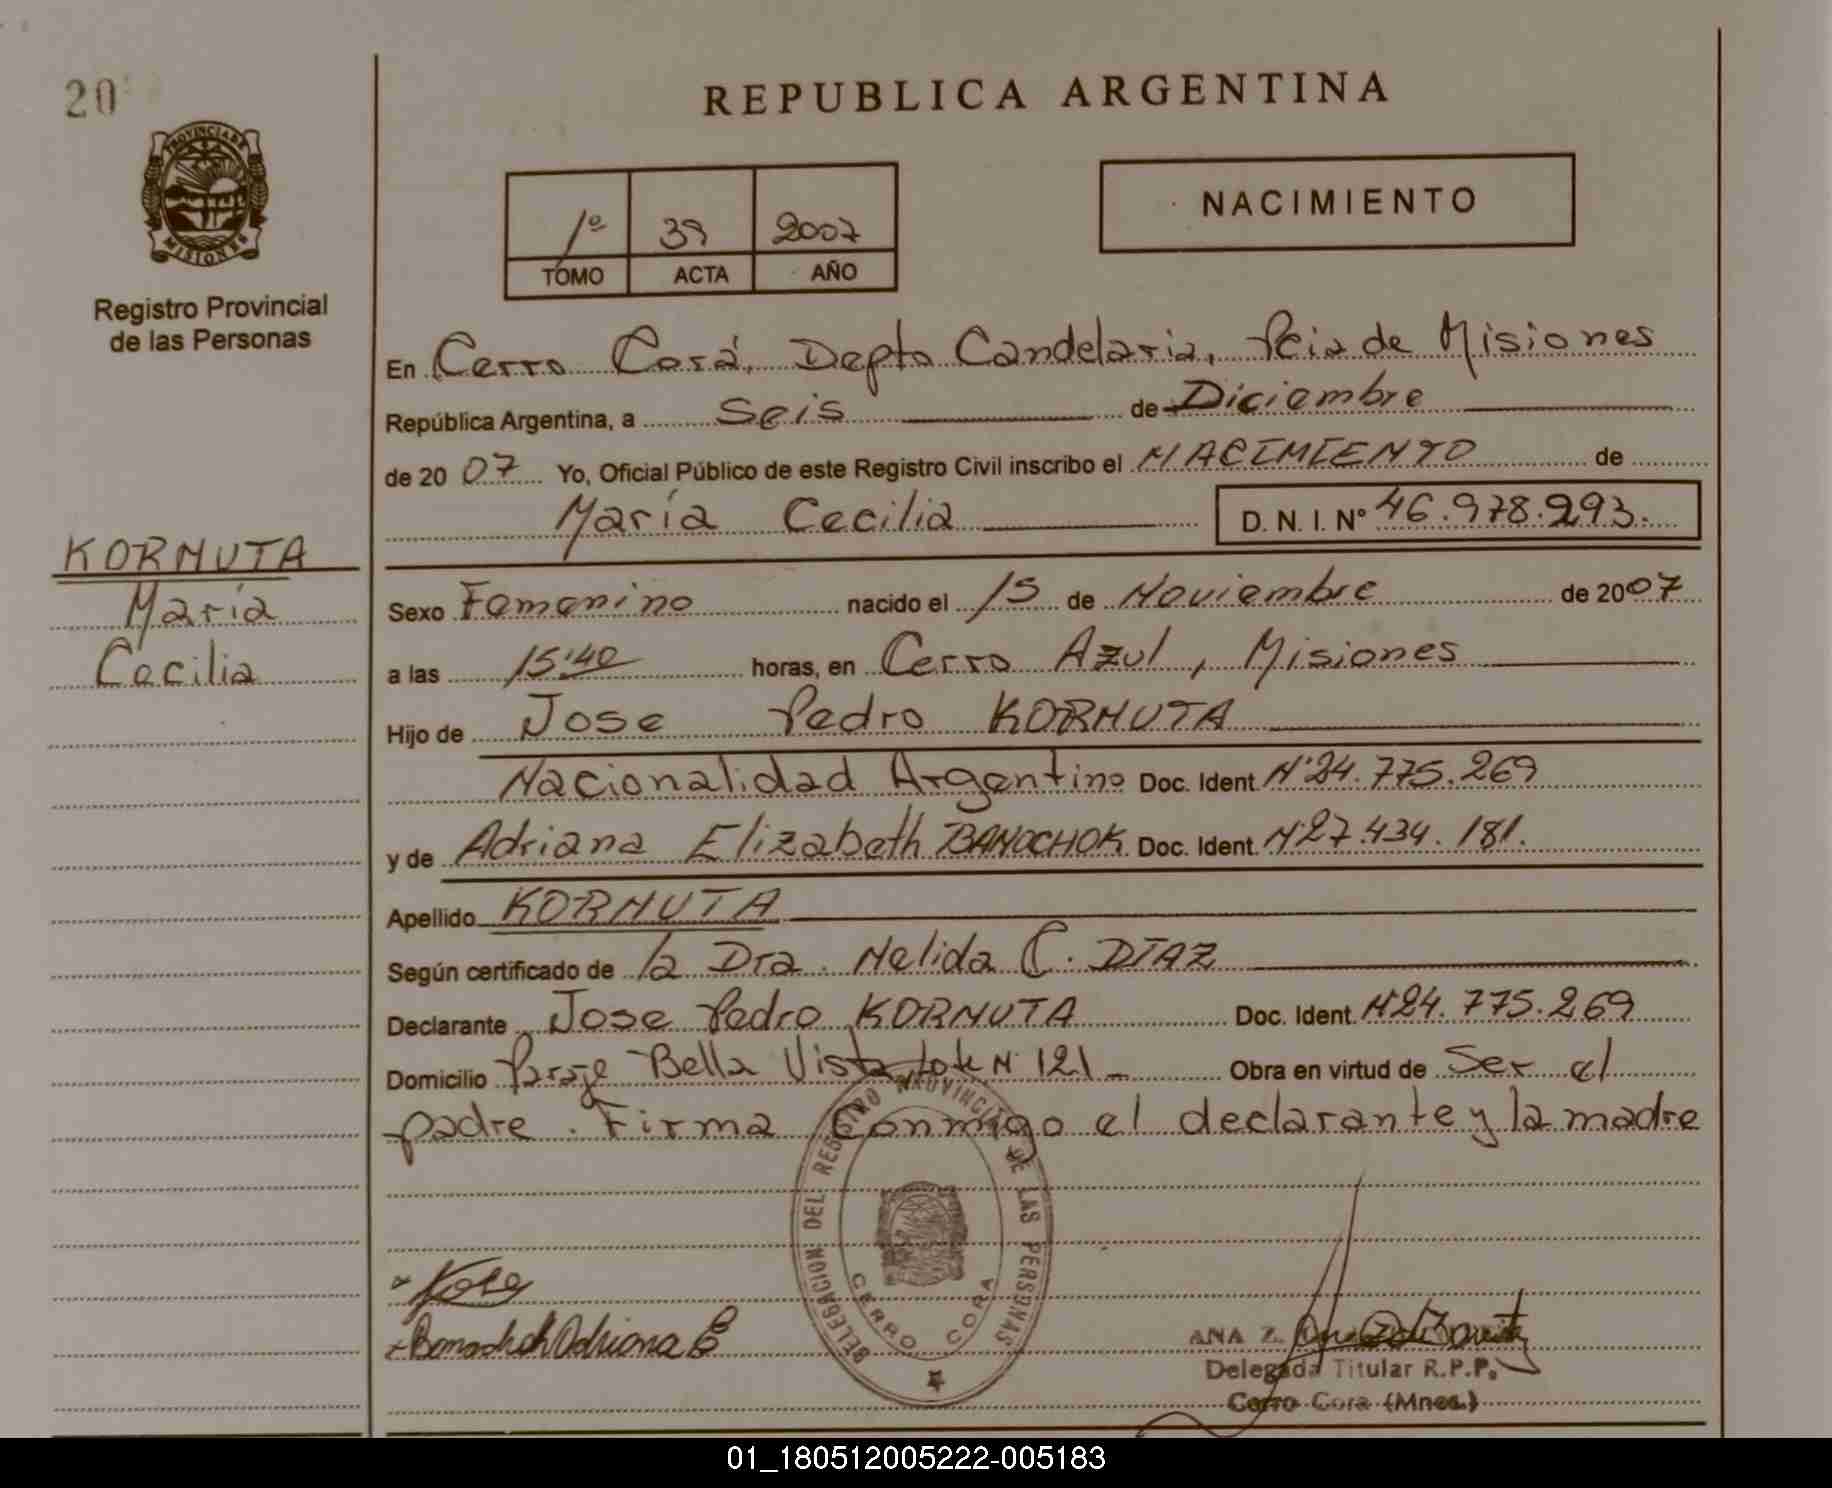 20
PROVINCIA DE
MISIONES
Registro Provincial
de las Personas
REPUBLICA ARGENTINA
1º 39 2007
TOMO ACTA AÑO
NACIMIENTO
En Cerro Corá, Depto Candelaria, Pcia de Misiones
República Argentina, a Seis de Diciembre
de 2007 Yo, Oficial Público de este Registro Civil inscribo el NACIMIENTO de
María Cecilia D. N. I. Nº 46.978.293.
KORNUTA
María
Cecilia
Sexo Femenino nacido el 15 de Noviembre de 2007
a las 15'40 horas, en Cerro Azul, Misiones
Hijo de Jose Pedro KORNUTA
Nacionalidad Argentino Doc. Ident. Nº24.775.269
y de Adriana Elizabeth BANOCHOK Doc. Ident. Nº27.434.181.
Apellido KORNUTA
Según certificado de la Dra. Nelida C. DIAZ
Declarante Jose Pedro KORNUTA Doc. Ident. Nº24.775.269
Domicilio Paraje Bella Vista, lote N 121 Obra en virtud de Ser el
padre. Firma Conmigo el declarante y la madre
DELEGACION DEL REGISTRO PROVINCIAL DE LAS PERSONAS
CERRO CORA
Adriana E
ANA Z.
Delegada Titular R.P.P.
Cerro Cora (Mnes.)
01_180512005222-005183